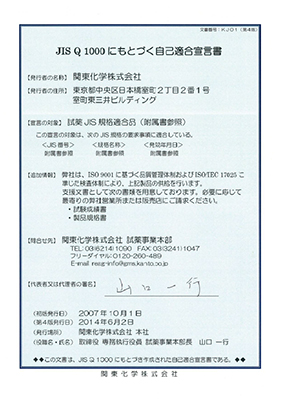 文書番号：KJ01（第4版）
JIS Q 1000 にもとづく自己適合宣言書
【発行者の名称】 関東化学株式会社
【発行者の住所】 東京都中央区日本橋室町2丁目2番1号
室町東三井ビルディング
【宣言の対象】 試薬 JIS 規格適合品（附属書参照）
この宣言の対象は、次の JIS 規格の要求事項に適合している。
＜JIS 番号＞ ＜規格名称＞ ＜発効年月日＞
附属書参照 附属書参照 附属書参照
【追加情報】 弊社は、ISO 9001 に基づく品質管理体制および ISO/IEC 17025 に
準じた検査体制により、上記製品の供給を行います。
支援文書として次の書類を用意しております。必要に応じて
最寄りの弊社営業所または販売店にご請求ください。
・試験成績書
・製品規格書
【問合せ先】 関東化学株式会社 試薬事業本部
TEL: 03(6214)1090 FAX: 03(3241)1047
フリーダイヤル: 0120-260-489
E-mail: reag-info@gms.kanto.co.jp
【代表者又は代理者の署名】 山口 一行
（初版発行日） 2007年10月1日
（第4版発行日） 2014年6月2日
（発行場所） 関東化学株式会社 本社
（役職名・氏名） 取締役 専務執行役員 試薬事業本部長 山口 一行
◆◆この文書は、JIS Q 1000 にもとづき作成された自己適合宣言書である。◆◆
関東化学株式会社